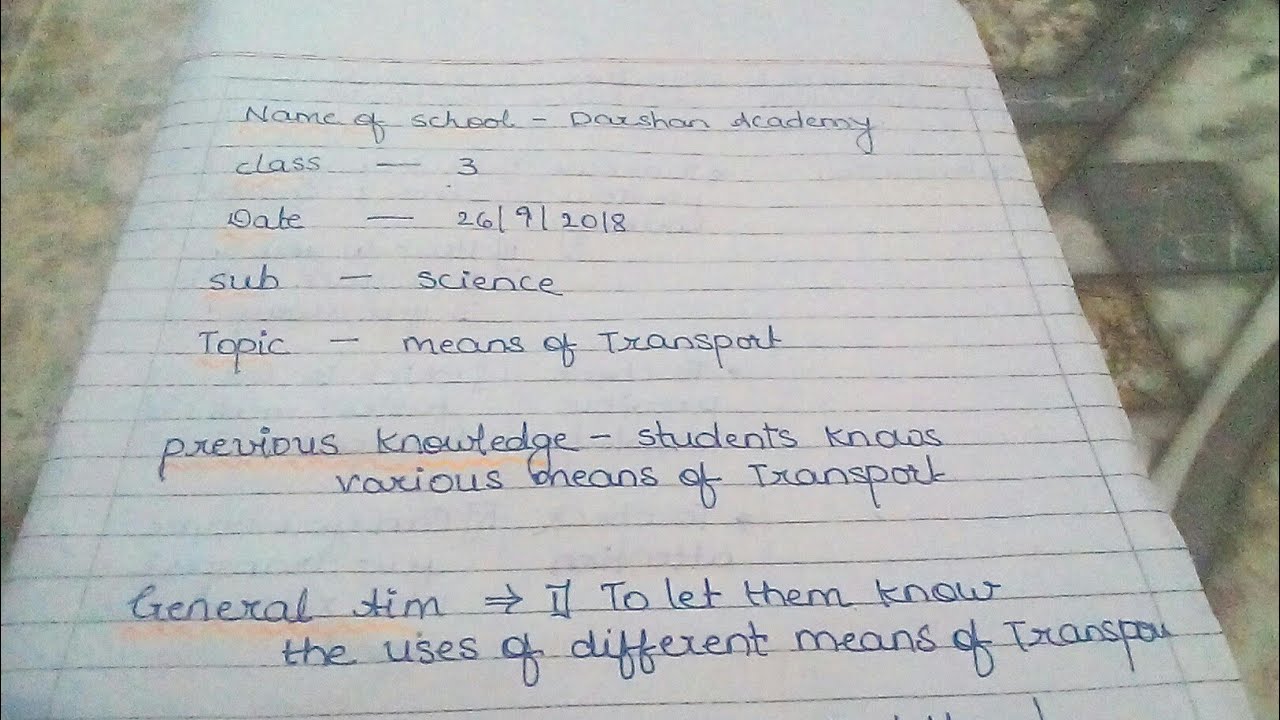 Name of school - Darshan Academy
class — 3
Date — 26/9/2018
sub — science
Topic — means of Transport
previous knowledge - students knows
various means of Transport
General Aim ⇒ 1] To let them know
the uses of different means of Transpor